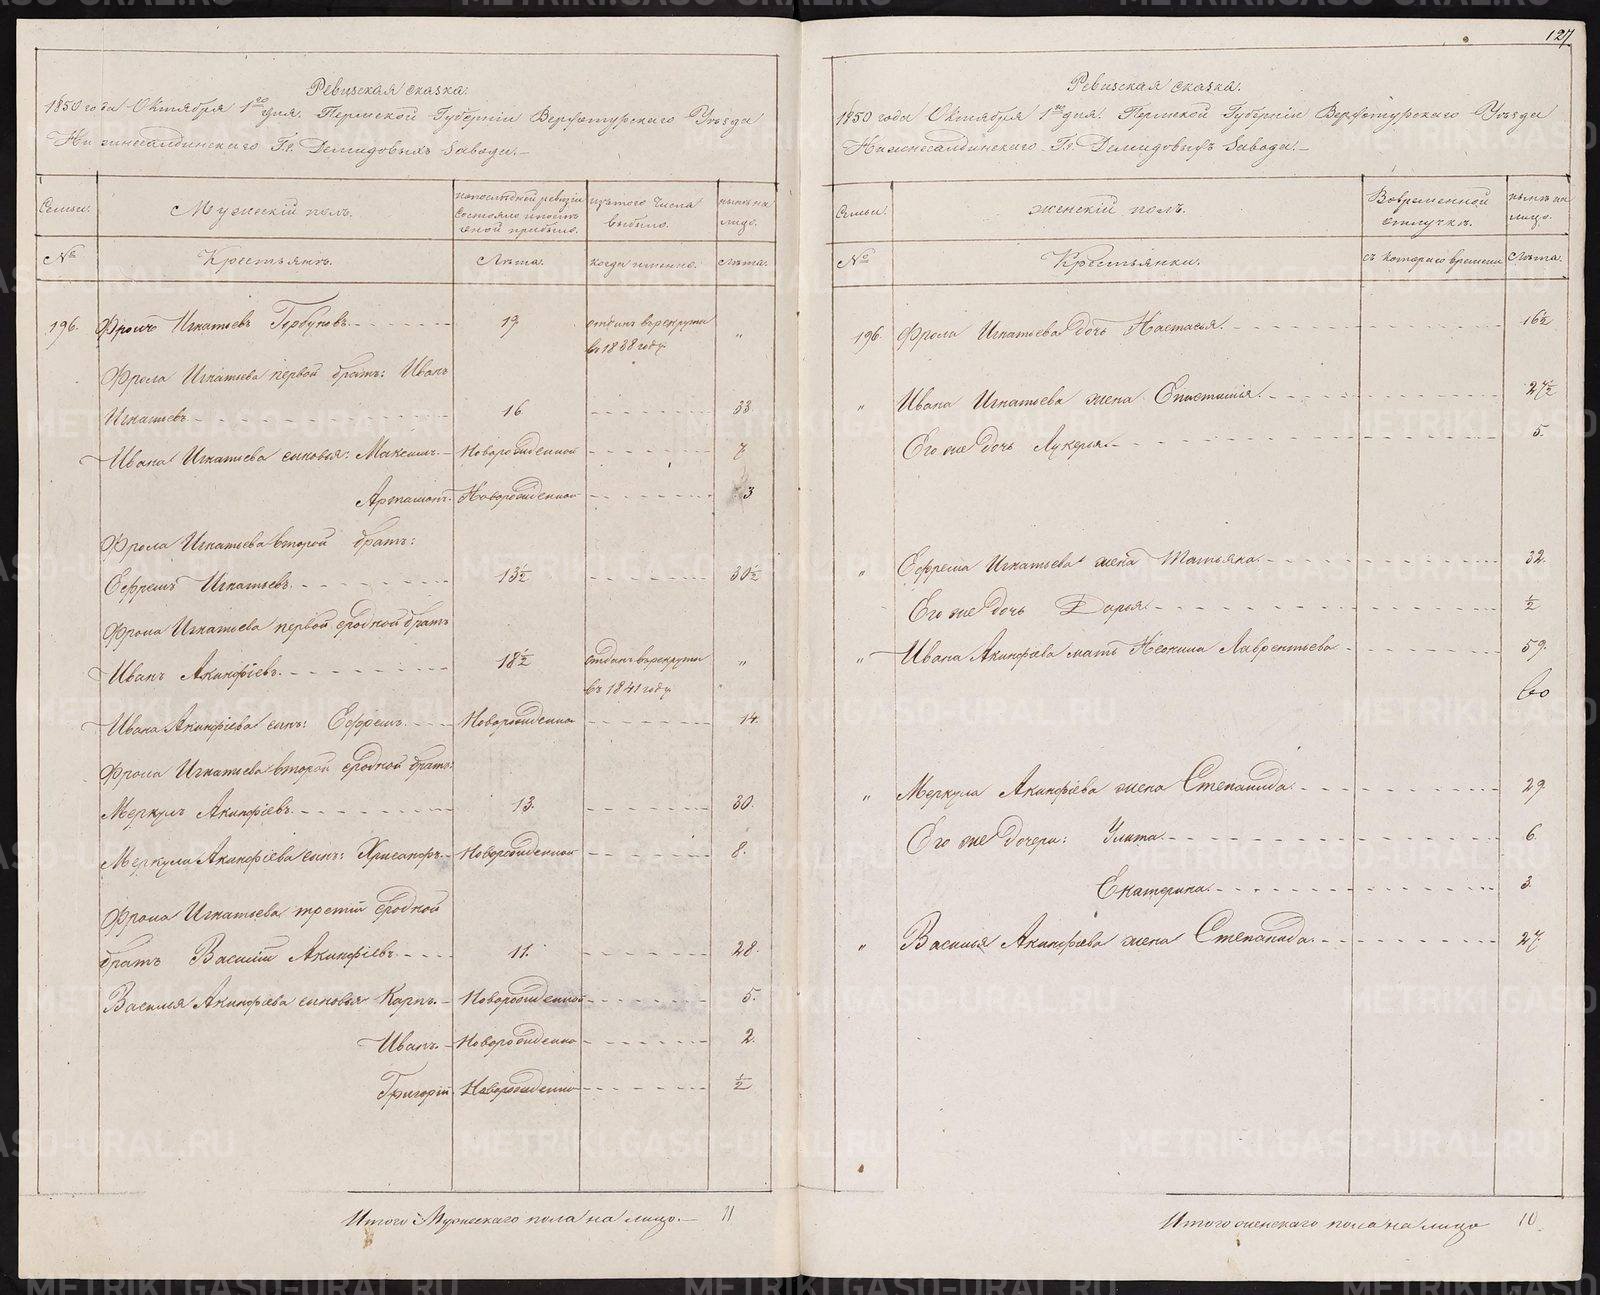 Ревизская сказка.
1850 года Октября 1го дня. Пермской Губернiи Верхотурскаго Уѣзда
Нижнесалдинскаго Г.г. Демидовыхъ Завода.
Семьи.
Мужескiй полъ.
По последней ревизiи состояло и после оной прибыло.
Изъ того числа выбыло.
Нынѣ на лицо.
№
Крестьянъ.
Лѣта.
когда именно.
Лѣта.
196. Фролъ Игнатьевъ Горбуновъ. 19. отданъ въ рекруты „
въ 1838 году
Фрола Игнатьева первой братъ: Иванъ
Игнатьевъ. 16. 33.
Ивана Игнатьева сыновья: Максимъ. Новорожденной 7
Артамонъ. Новорожденной 3
Фрола Игнатьева второй братъ:
Ефремъ Игнатьевъ. 13½ 30½
Фрола Игнатьева первой сродной братъ
Иванъ Акинфiевъ. 18½ отданъ въ рекруты „
въ 1841 году
Ивана Акинфiева сынъ: Ефремъ. Новорожденно 14.
Фрола Игнатьева второй сродной братъ:
Меркулъ Акинфiевъ. 13. 30.
Меркула Акинфiева сынъ: Хрисанфъ. Новорожденной 8.
Фрола Игнатьева третiй сродной
братъ Василiй Акинфiевъ. 11. 28.
Василья Акинфiева сыновья Карпъ. Новорожденной 5.
Иванъ. Новорожденно 2.
Григорiй Новорожденно ½
Итого Мужескаго пола на лицо. 11
127
Ревизская сказка.
1850 года Октября 1го дня. Пермской Губернiи Верхотурскаго Уѣзда
Нижнесалдинскаго Г.г. Демидовыхъ Завода.
Семьи.
Женскiй полъ.
Во временной отлучкѣ.
Нынѣ на лицо.
№
Крестьянки.
съ котораго времени
Лѣта.
196. Фрола Игнатьева дочь Настасья. 16½
„ Ивана Игнатьева жена 27½
Его же дочь Лукерья. 5.
„ Ефрема Игнатьева жена Татьяна. 32.
Его же дочь Дарья. ½
„ Ивана Акинфiева мать Неонила Лаврентьева 59.
„ Меркула Акинфiева жена Степанида. 29
Его же дочери: Улита. 6.
Екатерина. 3.
„ Василья Акинфiева жена Степанида. 27.
Итого женскаго пола на лицо 10.
METRIKI.GASO-URAL.RU